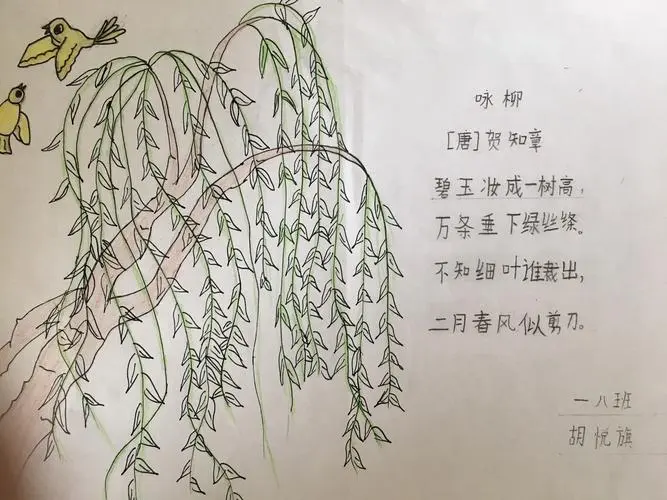 咏柳
[唐]贺知章
碧玉妆成一树高，
万条垂下绿丝绦。
不知细叶谁裁出，
二月春风似剪刀。
一八班
胡悦旗